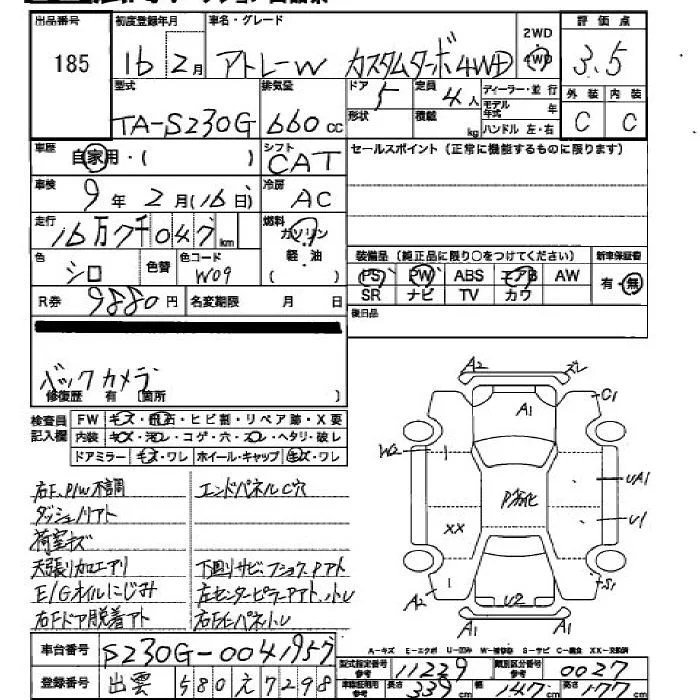 出品番号 初度登録年月 車名・グレード 2WD 評価点
185 16 2月 アトレーW カスタムターボ4WD 4WD 3.5
型式 排気量 ドア 5 定員 4人 ディーラー・並行 外装 内装
TA-S230G 660cc 形状 積載 kg モデル年式 年 ハンドル 左・右 C C
車歴 自家用・( ) シフト CAT セールスポイント(正常に機能するものに限ります)
車検 9年2月(16日) 冷房 AC
走行 16万7千047km 燃料 ガソリン
色 シロ 色替 色コード W09 軽・油 ( ) 装備品(純正品に限り○をつけてください) 新車保証書
PS PW ABS エアB AW 有・無
R券 9880円 名変期限 月 日 SR ナビ TV カワ
後日品
バックカメラ
修復歴 有 〔箇所 〕
検査員記入欄 FW キズ・飛石・ヒビ割・リペア跡・X要
内装 キズ・汚レ・コゲ・穴・スレ・ヘタリ・破レ
ドアミラー キズ・ワレ ホイール・キャップ キズ・ワレ
A2 ズレ
A1 C1
W2 1
P劣化 UA1
XX U1
A2 1 U2 S1
A1 A1
右F、P/W不調 エンドパネルC穴
ダッシュノリアト
荷室キズ
天張り加工アリ 下廻りサビ、フショク、Pアト
E/Gオイルにじみ 左センターピラーアト、小レ
右Fドア脱着アト
A-キズ E-エクボ U-凹み W-補修跡 S-サビ C-腐食 XX-交換済
車台番号 S230G-0041957 型式指定番号 参考 11229 類別区分番号 参考 0027
登録番号 出雲 580 え 7298 車庫証明用 参考 長さ 339cm 幅 147cm 高さ 177cm